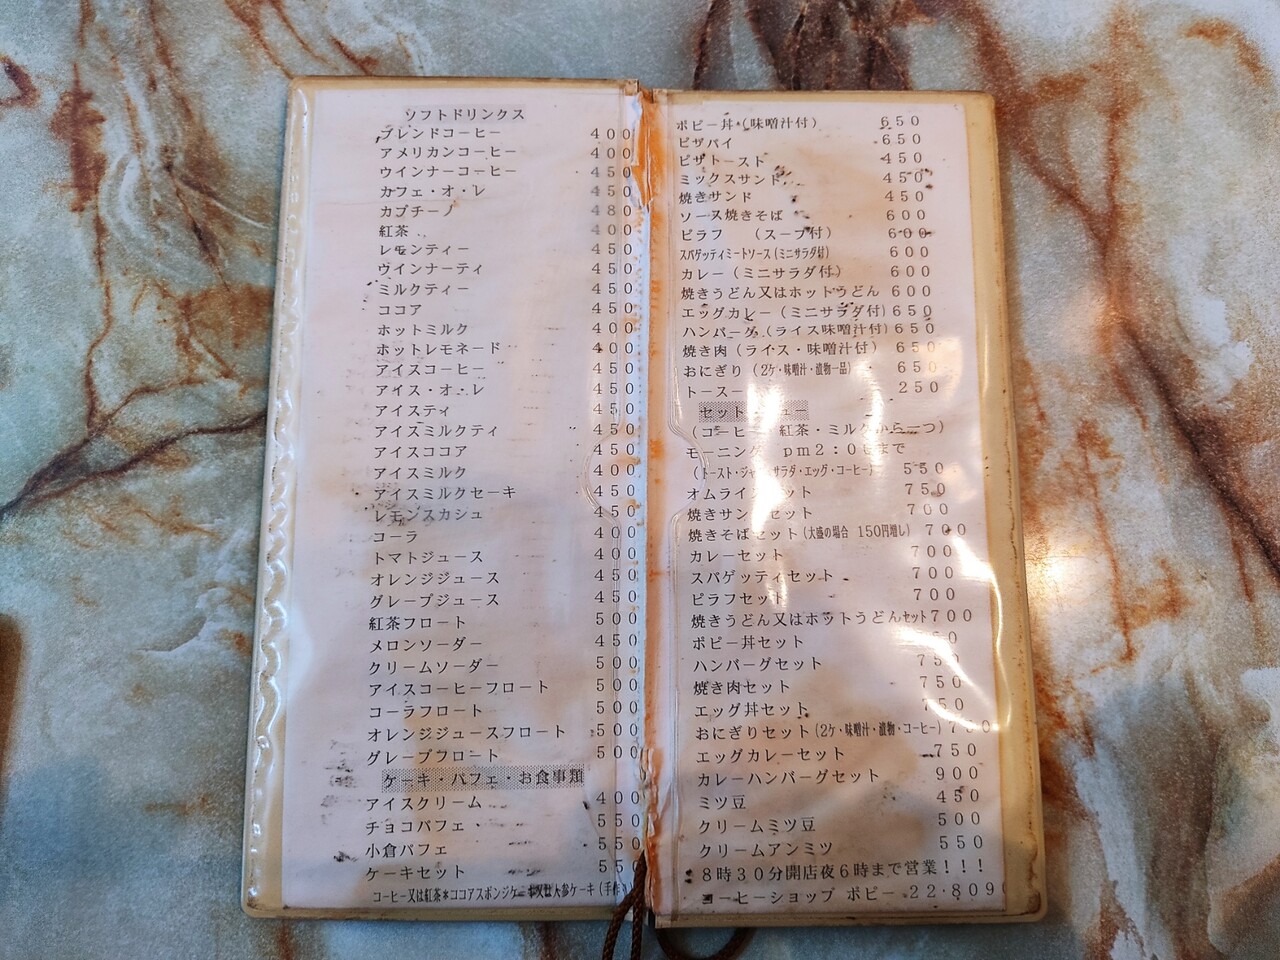 ソフトドリンクス
ブレンドコーヒー 400
アメリカンコーヒー 400
ウインナーコーヒー 450
カフェ・オ・レ 450
カプチーノ 480
紅茶 400
レモンティー 450
ウインナーティ 450
ミルクティー 450
ココア 450
ホットミルク 400
ホットレモネード 400
アイスコーヒー 450
アイス・オ・レ 450
アイスティ 450
アイスミルクティ 450
アイスココア 450
アイスミルク 400
アイスミルクセーキ 450
レモンスカシュ 450
コーラ 400
トマトジュース 400
オレンジジュース 450
グレープジュース 450
紅茶フロート 500
メロンソーダー 450
クリームソーダー 500
アイスコーヒーフロート 500
コーラフロート 500
オレンジジュースフロート 500
グレープフロート 500
ケーキ・パフェ・お食事類
アイスクリーム 400
チョコパフェ 550
小倉パフェ 550
ケーキセット 550
コーヒー又は紅茶*ココアスポンジケーキ又は人参ケーキ(手作
ポピー丼(味噌汁付) 650
ピザパイ 650
ピザトースト 450
ミックスサンド 450
焼きサンド 450
ソース焼きそば 600
ピラフ (スープ付) 600
スパゲッティミートソース(ミニサラダ付) 600
カレー(ミニサラダ付) 600
焼きうどん又はホットうどん 600
エッグカレー(ミニサラダ付) 650
ハンバーグ(ライス味噌汁付) 650
焼き肉(ライス・味噌汁付) 650
おにぎり(2ケ・味噌汁・漬物一品) 650
トースー 250
セット ュー
(コーヒー 紅茶・ミルクから一つ)
モーニング pm2:00まで
(トースト・ジャム サラダ・エッグ・コーヒー) 550
オムライスセット 750
焼きサンドセット 700
焼きそばセット(大盛の場合 150円増し) 700
カレーセット 700
スパゲッティセット 700
ピラフセット 700
焼きうどん又はホットうどんセット 700
ポピー丼セット 50
ハンバーグセット 750
焼き肉セット 750
エッグ丼セット 750
おにぎりセット(2ケ・味噌汁・漬物・コーヒー) 750
エッグカレーセット 750
カレーハンバーグセット 900
ミツ豆 450
クリームミツ豆 500
クリームアンミツ 550
8時30分開店夜6時まで営業!!!
コーヒーショップ ポピー 22-809